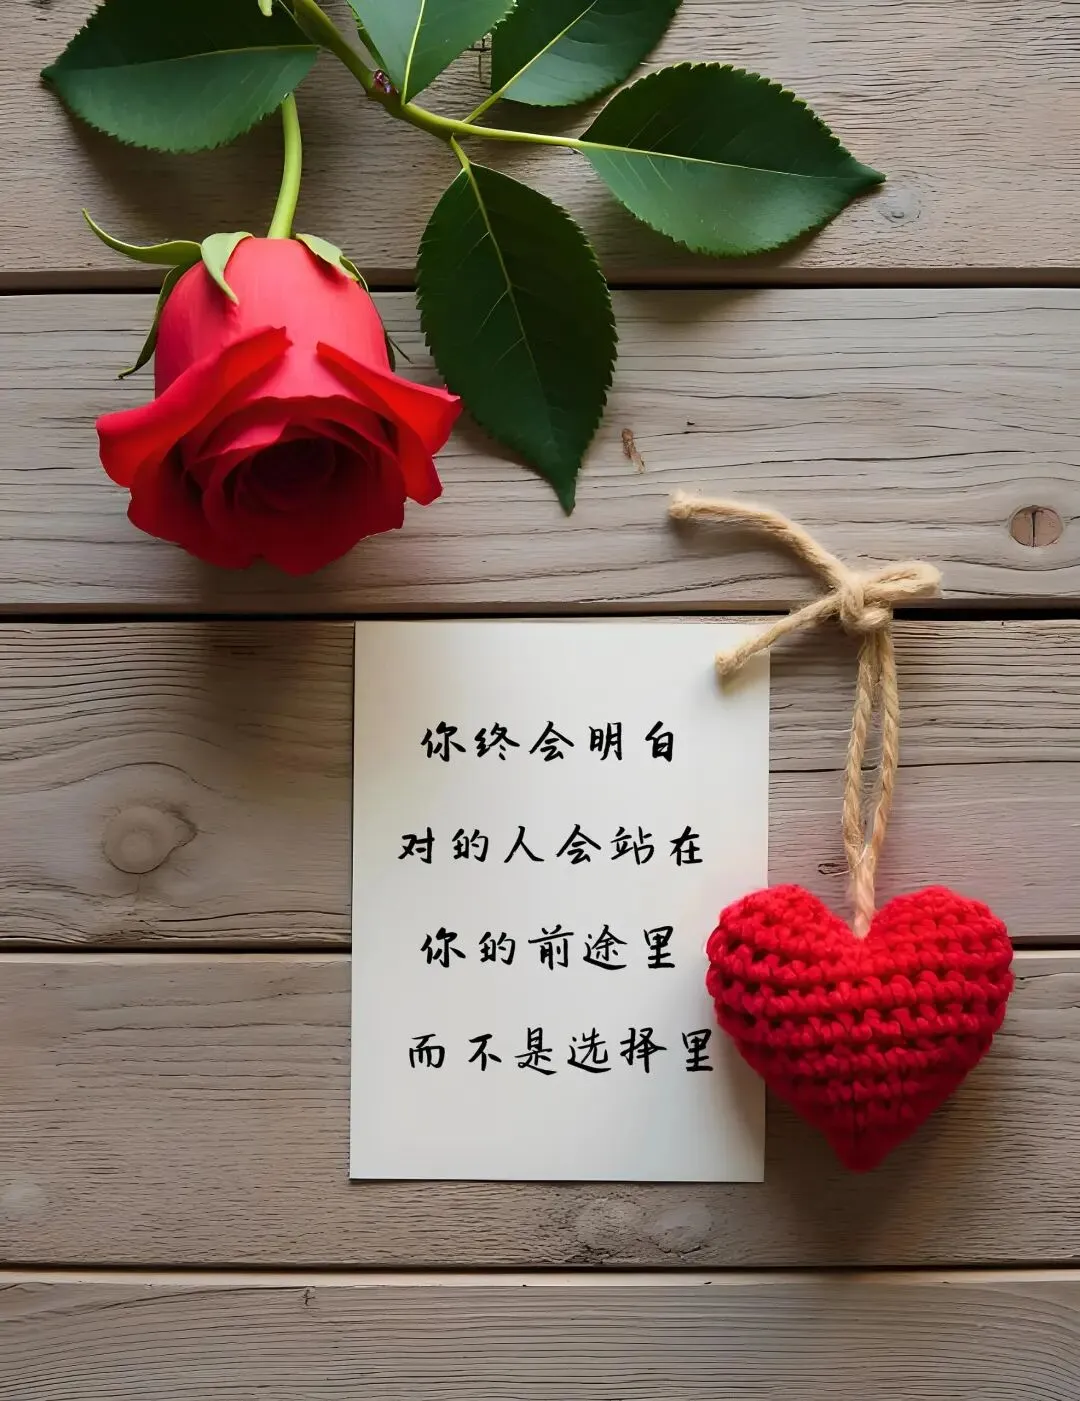 你终会明白
对的人会站在
你的前途里
而不是选择里